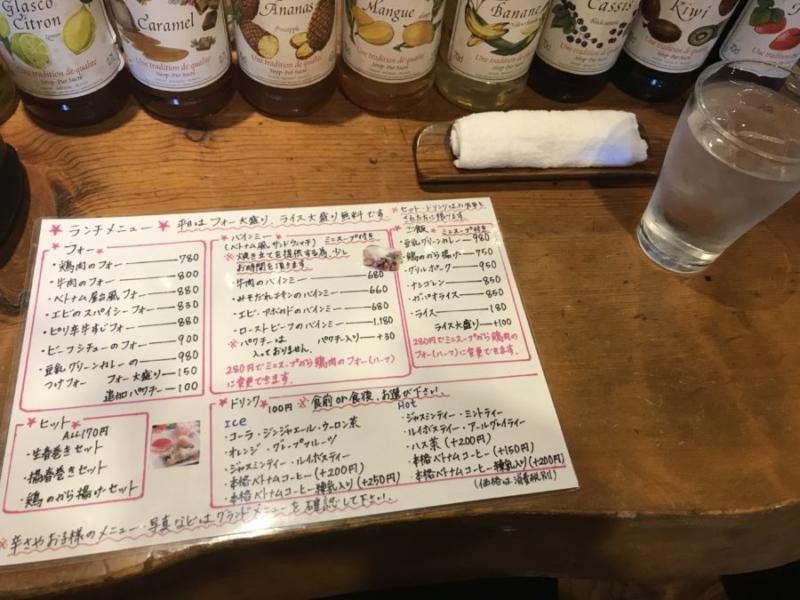 Glasco Citron
Une tradition de qualité
Caramel
Une tradition de qualité
Sirop Pur Sucre
Ananas
Une tradition de qualité
Sirop Pur Sucre
Mangue
Une tradition de qualité
Sirop Pur Sucre
Banane
Une tradition de qualité
Sirop Pur Sucre
Cassis
Une tradition de qualité
Kiwi
★ランチメニュー★ 平日はフォー大盛り、ライス大盛り無料です
★フォー★
・鶏肉のフォー 780
・牛肉のフォー 800
・ベトナム屋台風フォー 880
・エビのスパイシーフォー 830
・ピリ辛牛すじフォー 880
・ビーフシチューのフォー 900
・豆乳グリーンカレーの つけフォー 980
フォー大盛り 150
追加パクチー 100
★セット★
ALL170円
・生春巻きセット
・揚春巻きセット
・鶏のから揚げセット
★バインミー
(ベトナム風サンドウィッチ) ミニスープ付き
※焼き立てを提供する為、少し
お時間を頂きます
・牛肉のバインミー 680
・みそだれチキンのバインミー 660
・エビ・アボカドのバインミー 680
・ローストビーフのバインミー 1,180
※パクチーは入っておりません。 パクチー入り +30
280円でミニスープから鶏肉のフォー(ハーフ)
に変更できます.
※セット・ドリンクはお食事を
された方に限ります
ご飯 ミニスープ付き
・豆乳グリーンカレー 980
・鶏のから揚げ 750
・グリルポーク 950
・ナシゴレン 850
・ガパオライス 850
・ライス 180
ライス大盛り +100
280円でミニスープから鶏肉の
フォー(ハーフ)に変更できます.
★ドリンク★ 100円 ※食前or食後、お選び下さい!
ICE
・コーラ・ジンジャエール・ウーロン茶
・オレンジ・グレープフルーツ
・ジャスミンティー・ルイボスティー
・本格ベトナムコーヒー(+200円)
・本格ベトナムコーヒー練乳入り(+250円)
Hot
・ジャスミンティー・ミントティー
・ルイボスティー・アールグレイティー
・ハス茶(+200円)
・本格ベトナムコーヒー(+150円)
・本格ベトナムコーヒー練乳入り(+200円)
(価格は消費税別)
※辛さやお子様のメニュー・写真などはグランドメニューを確認して下さい!